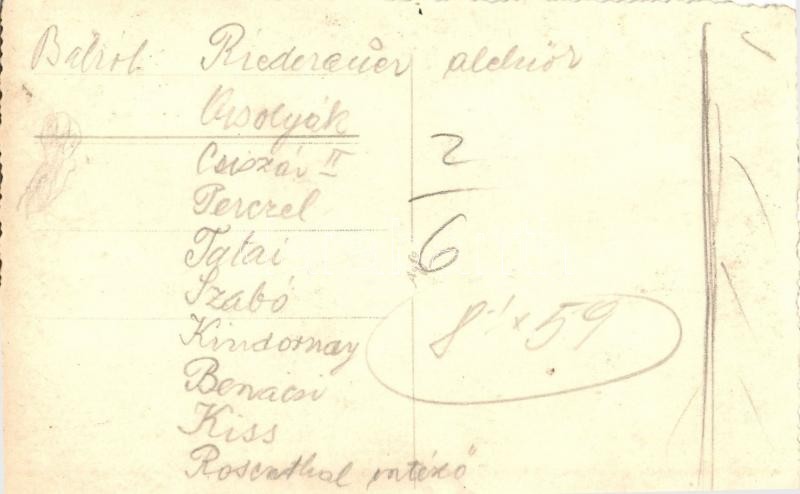 Balról: Riederauer alelnök
Orsolyák
Csiszár II
Perczel
Tatai
Szabó
Kindornay
Benacsi
Kiss
Rosenthal intéző
2
6
8 1 x 59